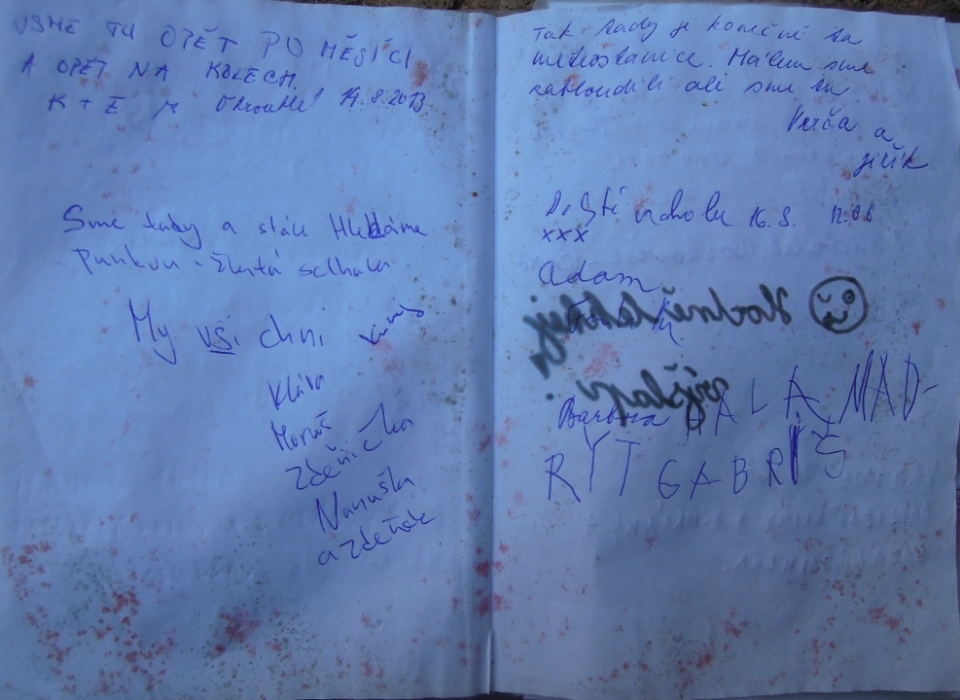 USME TU OPĚT PO MĚSÍCI
A OPĚT NA KOLECH.
K + E 14.8.2013
Sme tady a stále Hledáme
Punkvu - Žlutá selhala
My všichni
Klára
Zdenička
Nanuška
a Zdeněk
Tak tady je konečně ta
meteostanice. Málem sme
zabloudili ale sme tu.
Verča a
jiřík
16.8.
xxx
Adam
Barbora HALA MAD-
RYT GABRIŠ